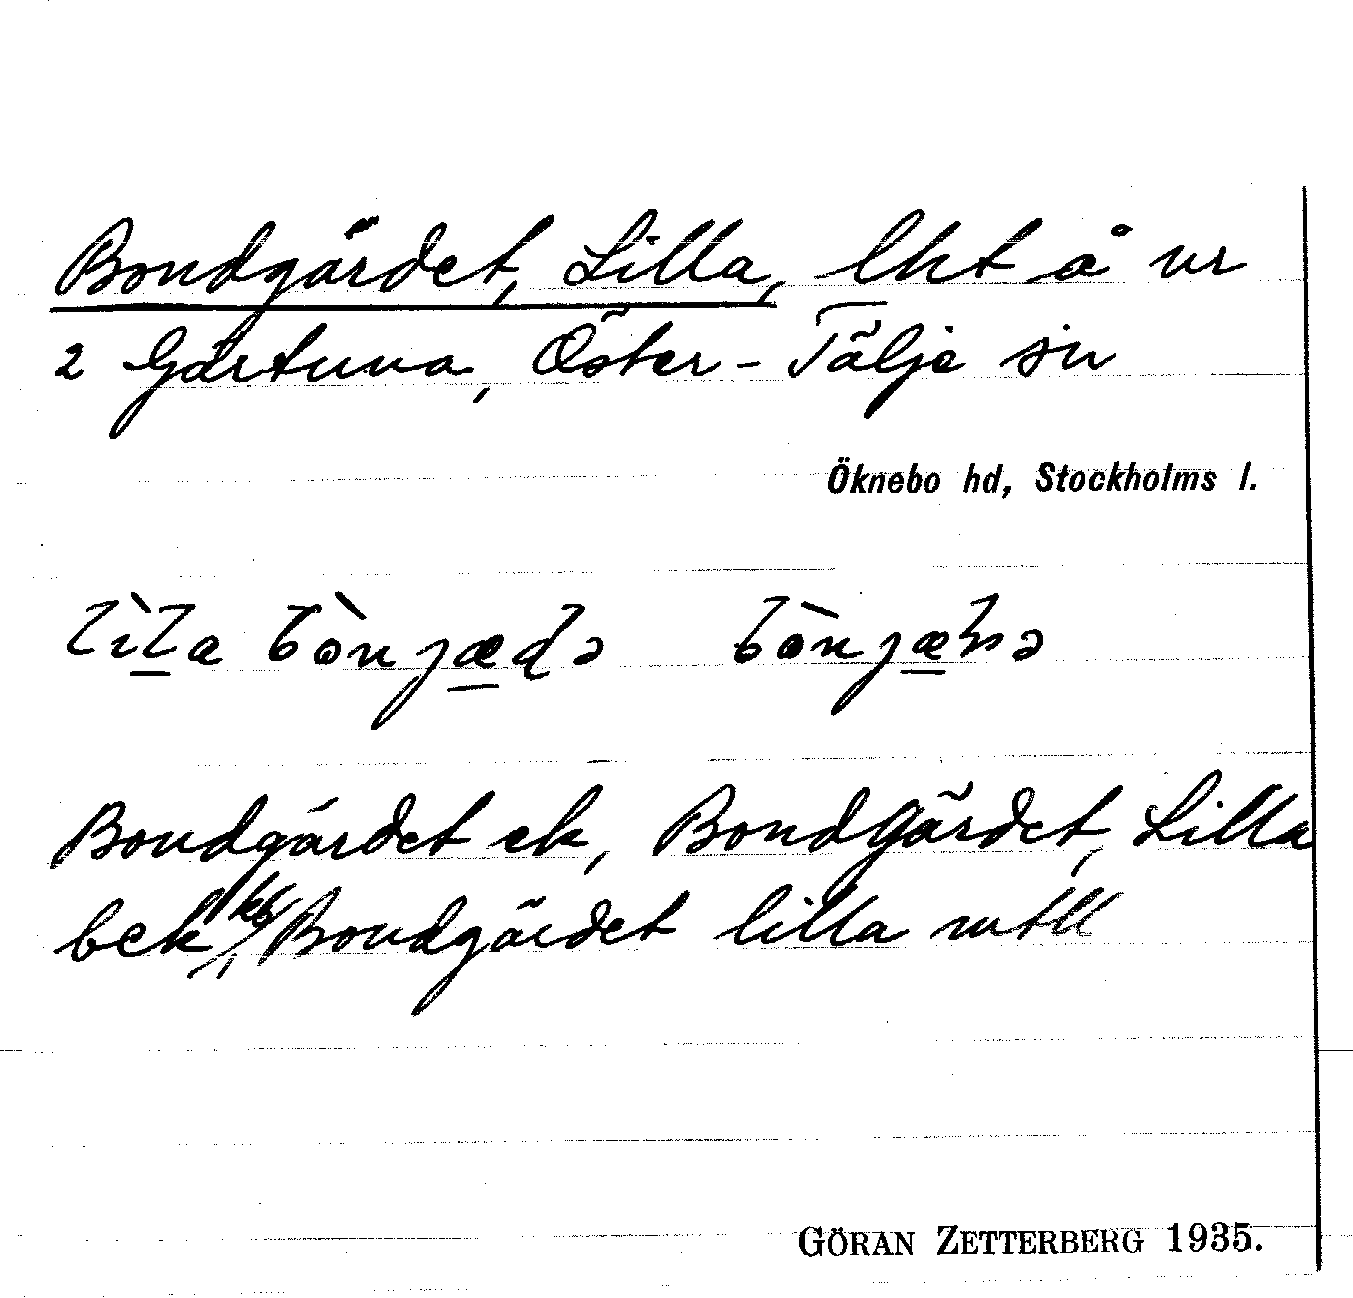 Bondgärdet, Lilla, lht å nr
2 Gärtuna, Öster-Tälje sn
Öknebo hd, Stockholms l.
lìla bònjædə bònjæṇə
Bondgärdet ek, Bondgärdet, Lilla
bek, Bondgärdet lilla mtll
GÖRAN ZETTERBERG 1935.